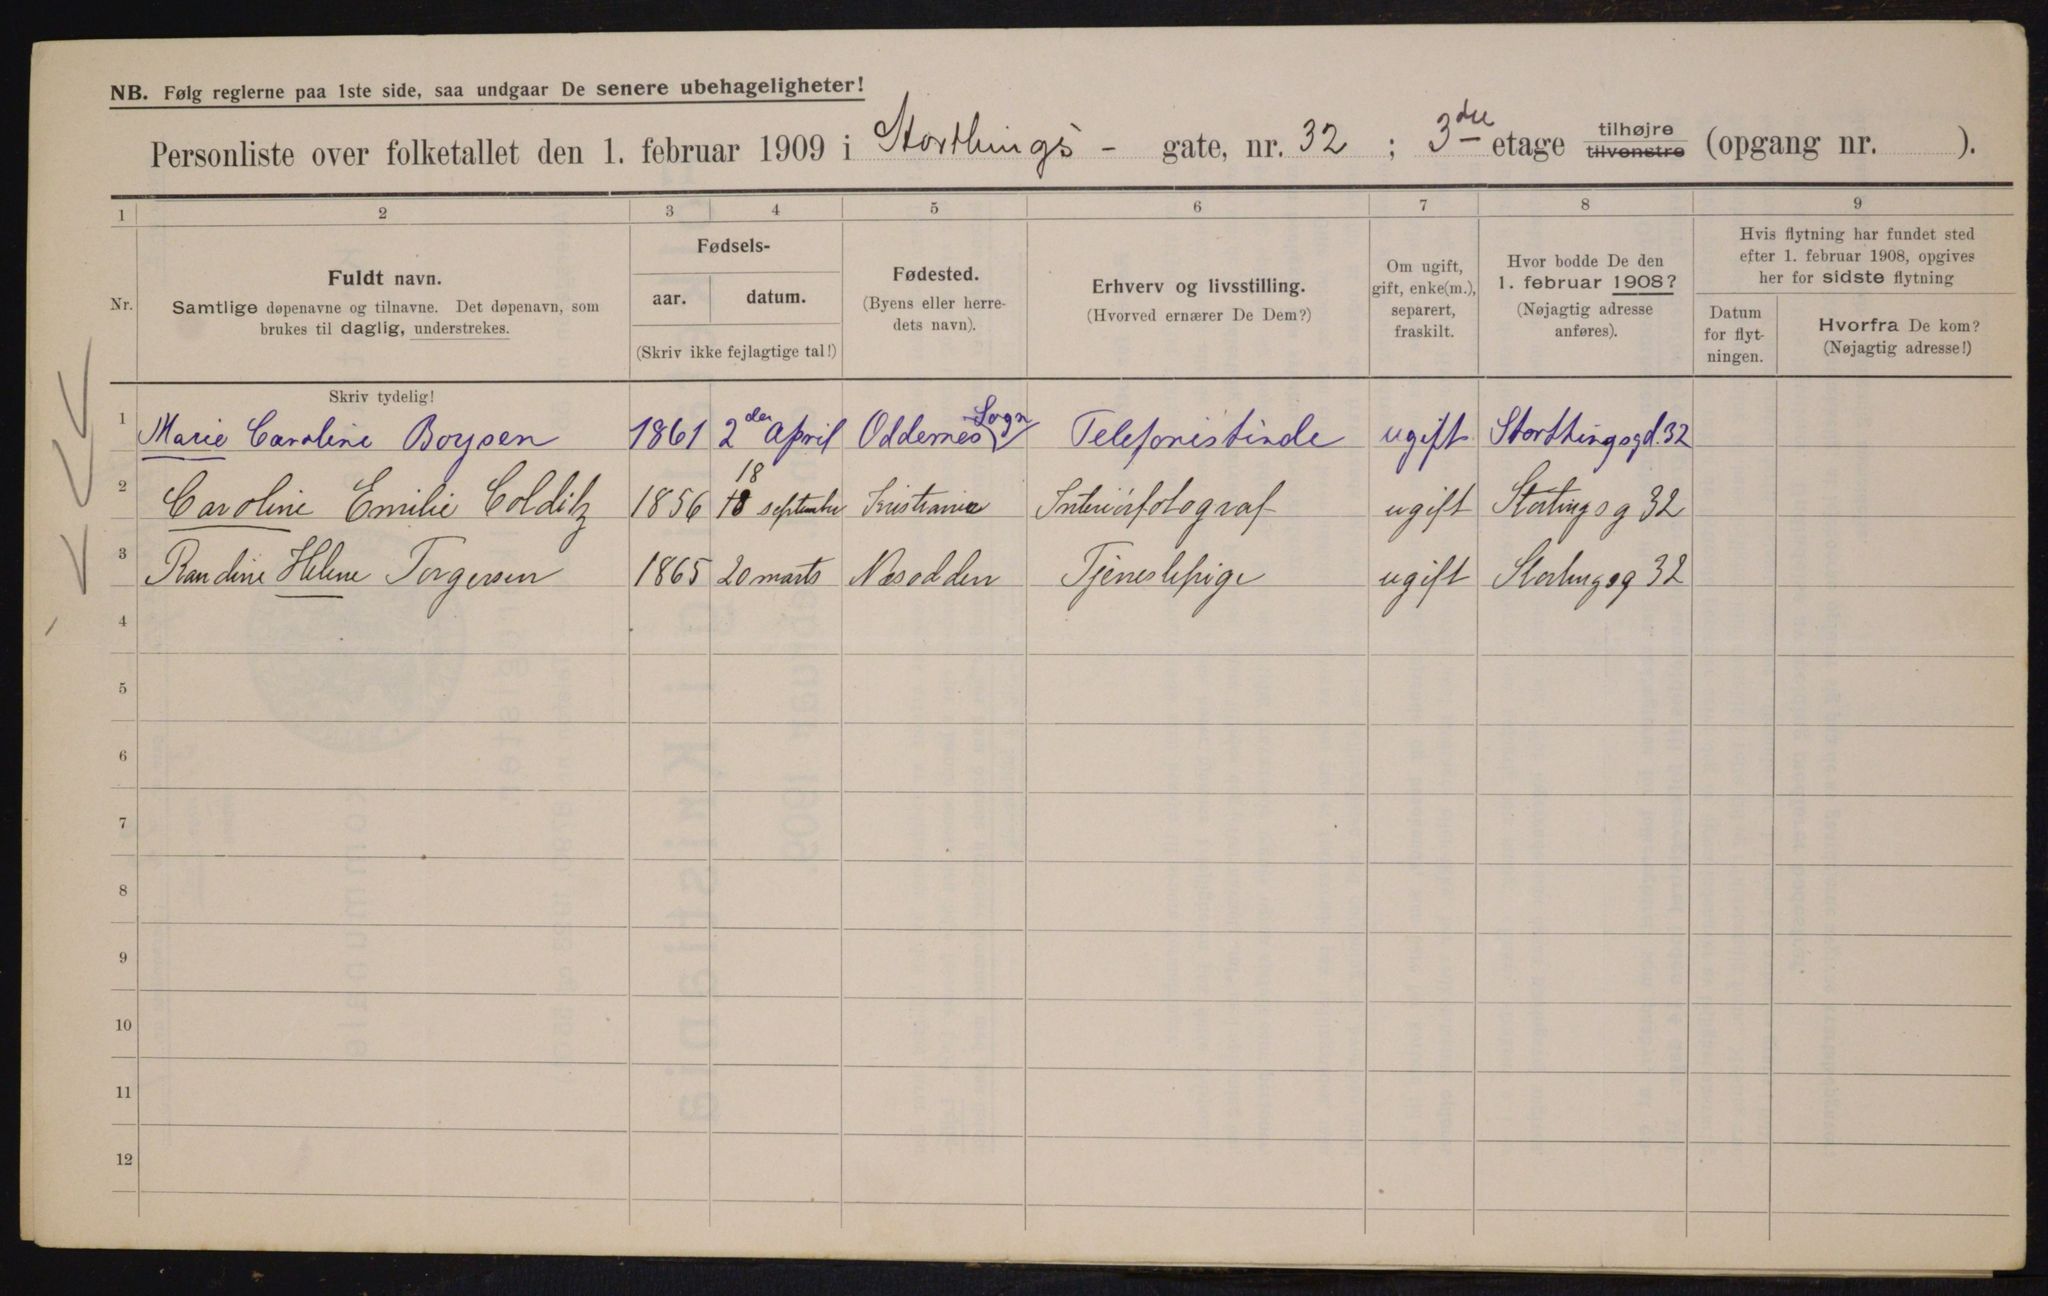 NB. Følg reglerne paa 1ste side, saa undgaar De senere ubehageligheter!
Personliste over folketallet den 1. februar 1909 i Storthings- gate, nr. 32; 3die etage tilhøjre tilvenstre (opgang nr. ).
1 2 3 4 5 6 7 8 9
Nr.
Fuldt navn.
Samtlige døpenavne og tilnavne. Det døpenavn, som
brukes til daglig, understrekes.
Fødsels-
aar. datum.
(Skriv ikke fejlagtige tal!)
Fødested.
(Byens eller herre-
dets navn).
Erhverv og livsstilling.
(Hvorved ernærer De Dem?)
Om ugift,
gift, enke(m.),
separert,
fraskilt.
Hvor bodde De den
1. februar 1908?
(Nøjagtig adresse
anføres).
Hvis flytning har fundet sted
efter 1. februar 1908, opgives
her for sidste flytning
Datum
for flyt-
ningen.
Hvorfra De kom?
(Nøjagtig adresse!)
Skriv tydelig!
1 Marie Caroline Boysen 1861 2den April Oddernes Sogn Telefonistinde ugift Storthingsgd. 32
2 Caroline Emilie Colditz 1856 18 18 september Kristiania Interiørfotograf ugift Stortingsg 32
3 Randine Helene Torgersen 1865 20 marts Næsodden Tjenestepige ugift Stortingsg 32
4
5
6
7
8
9
10
11
12